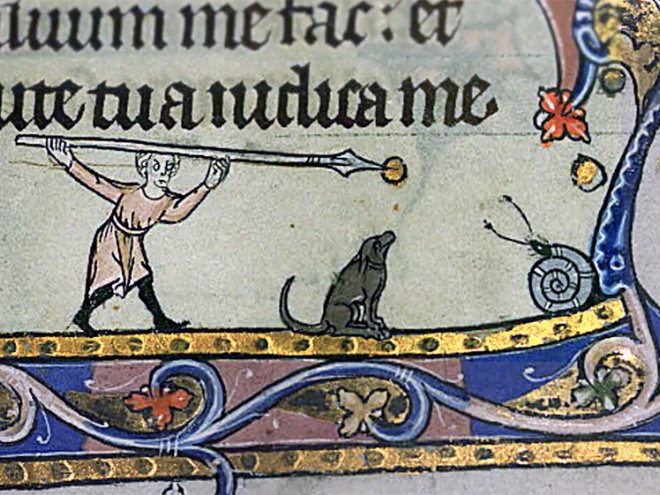 luum me fac: et
ute tua iudica me